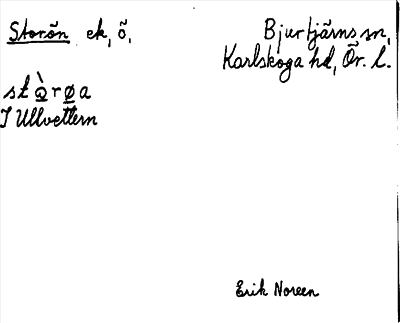 Storön ek, ö,
Bjurtjärns sn,
Karlskoga hd, Ör. l.
stò̲rø̲a
I Ullvettern
Erik Noreen